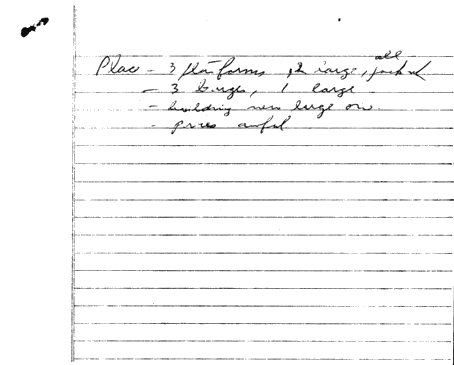 all
Plac - 3 platforms, 2 large,
- 3 barges, 1 large
- building new large on
- prices awful